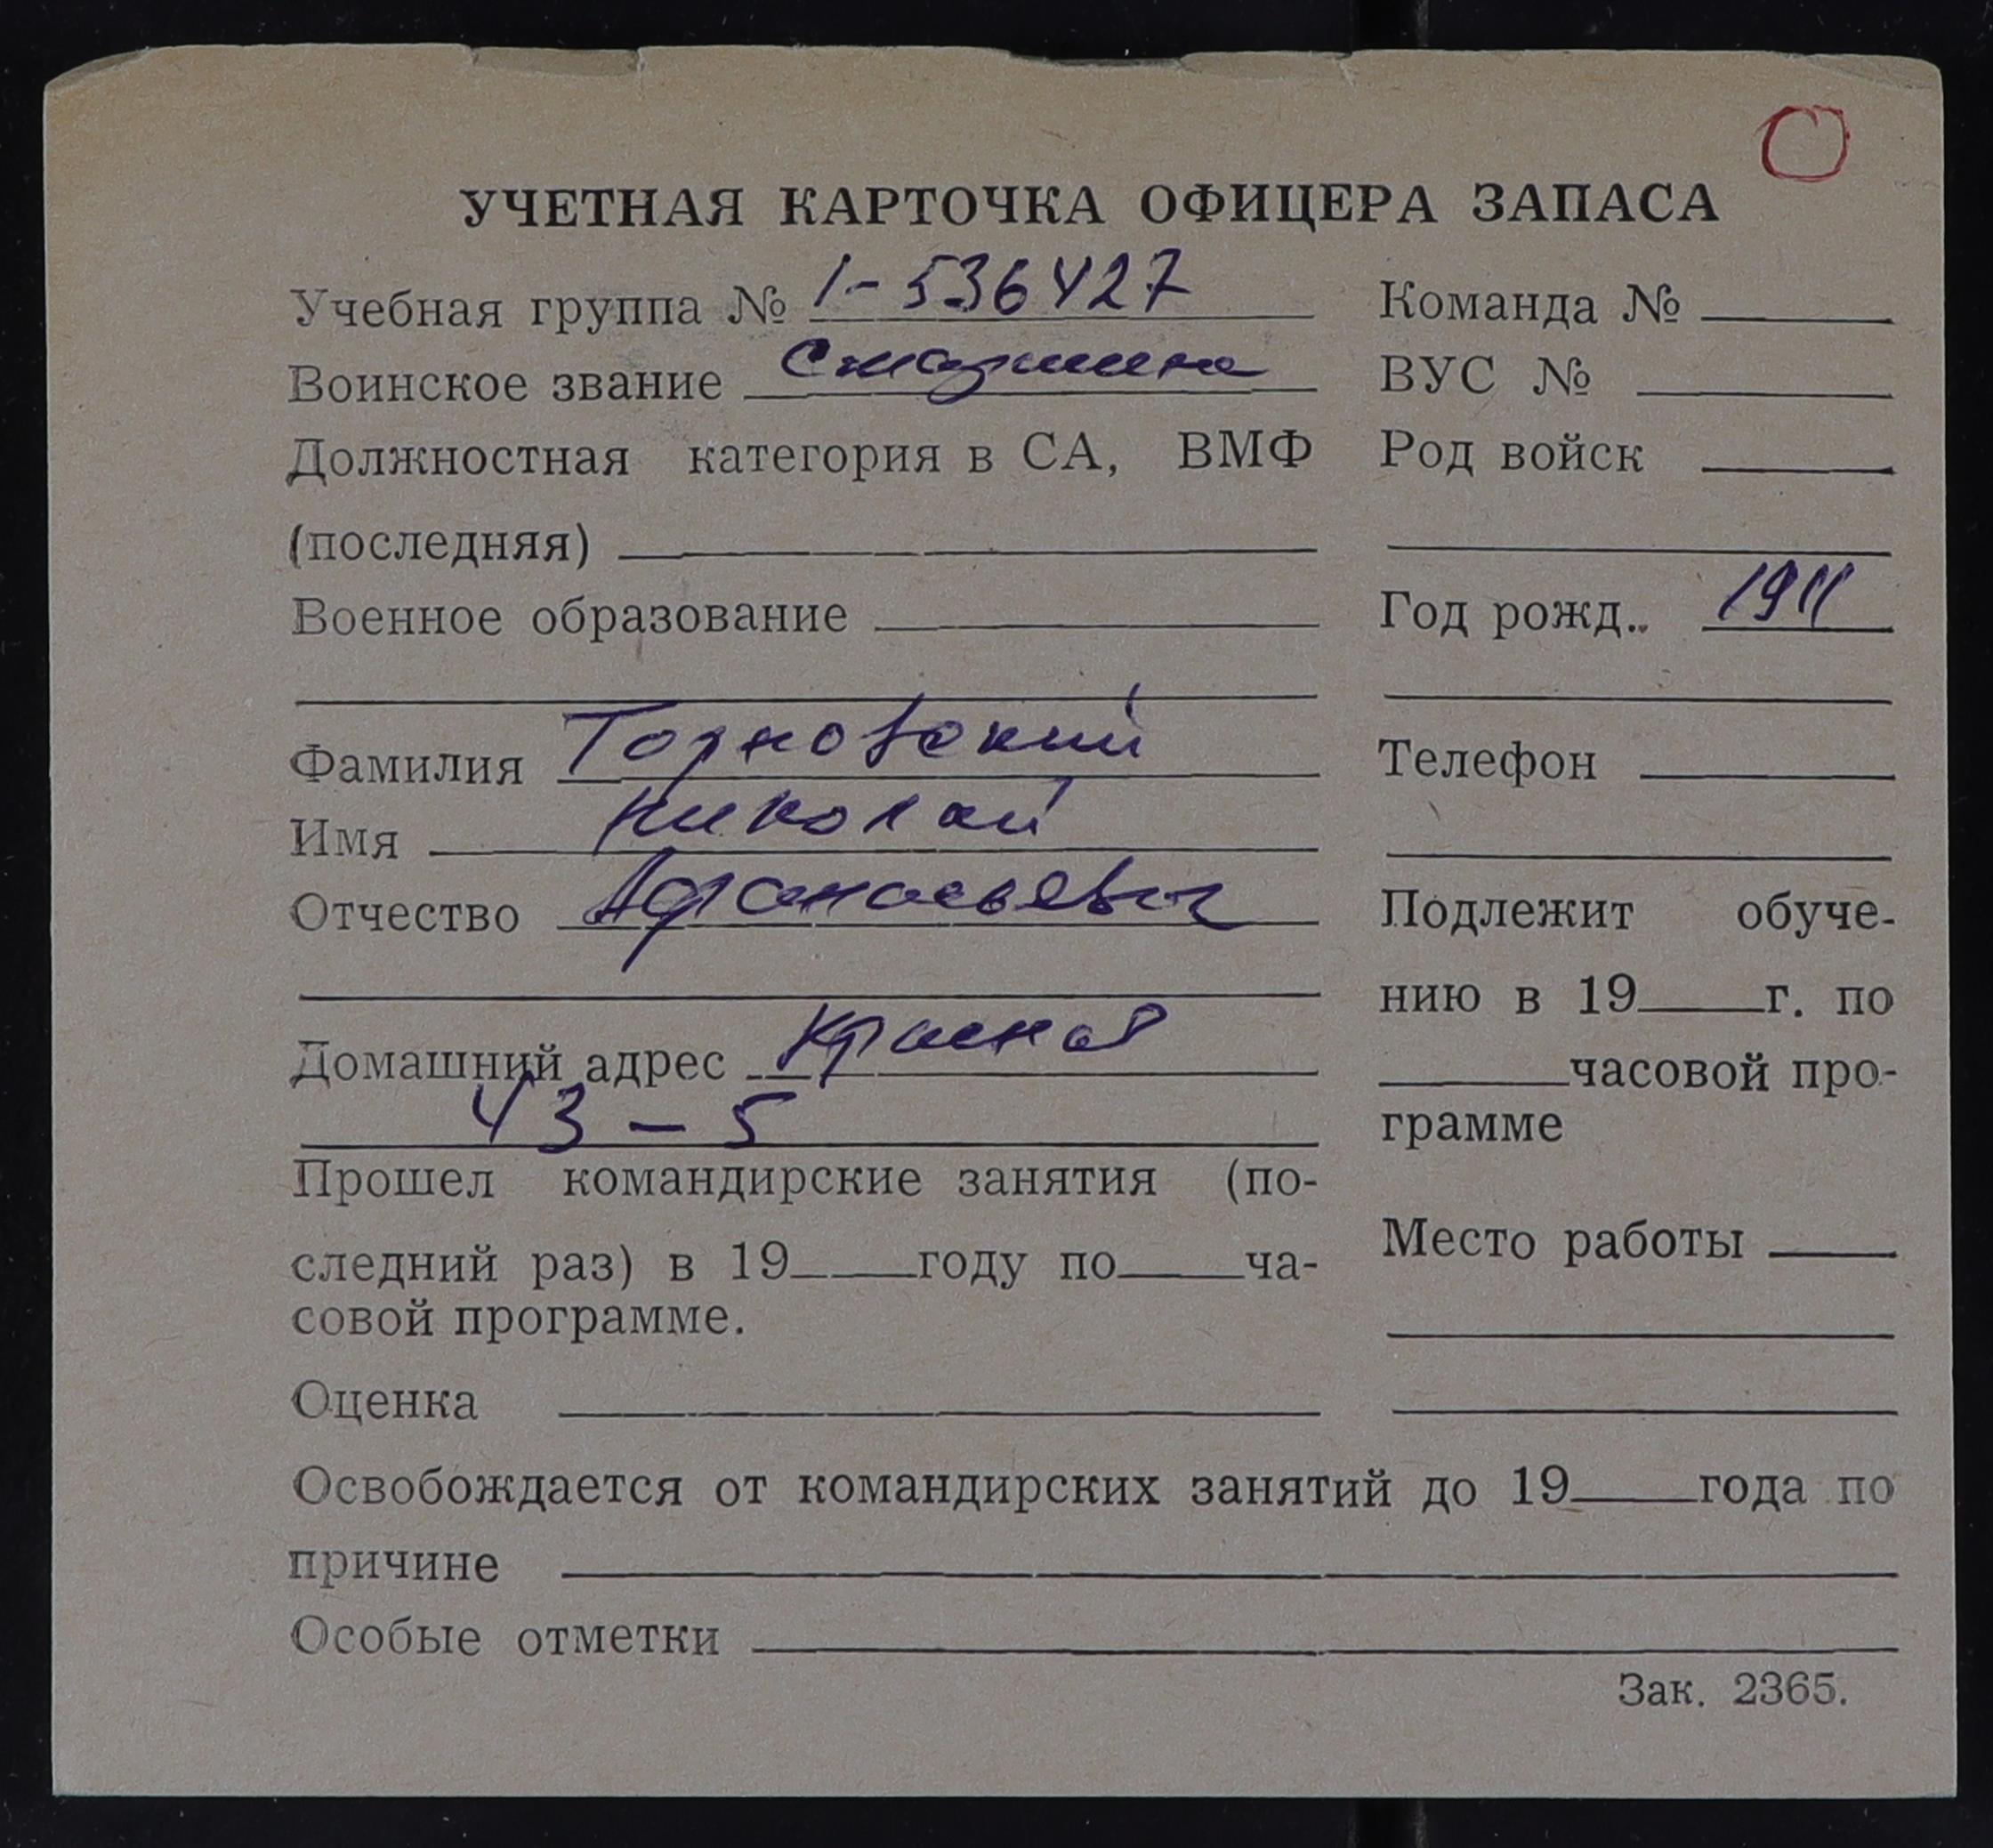 УЧЕТНАЯ КАРТОЧКА ОФИЦЕРА ЗАПАСА
Учебная группа № 1-536427
Воинское звание старшина
Должностная категория в СА, ВМФ
(последняя)
Военное образование
Фамилия Торновский
Имя Николай
Отчество Афанасьевич
Домашний адрес Красная
43-5
Прошел командирские занятия (по-
следний раз) в 19 году по ча-
совой программе.
Оценка
Команда №
ВУС №
Род войск
Год рожд. 1911
Телефон
Подлежит обуче-
нию в 19 г. по
часовой про-
грамме
Место работы
Освобождается от командирских занятий до 19 года по
причине
Особые отметки
Зак. 2365.